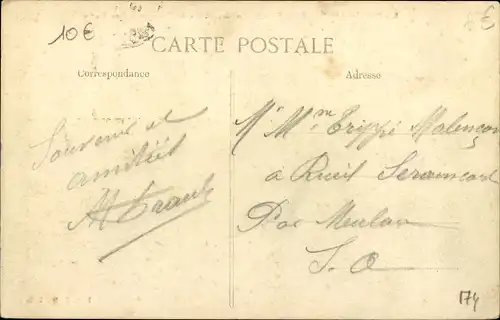 10€
CARTE POSTALE
Correspondance
Adresse
Souvenir et
amitiés
Mr Mme Trippé Malençon
a Rueil Seraincourt
Par Meulan
S. O
174